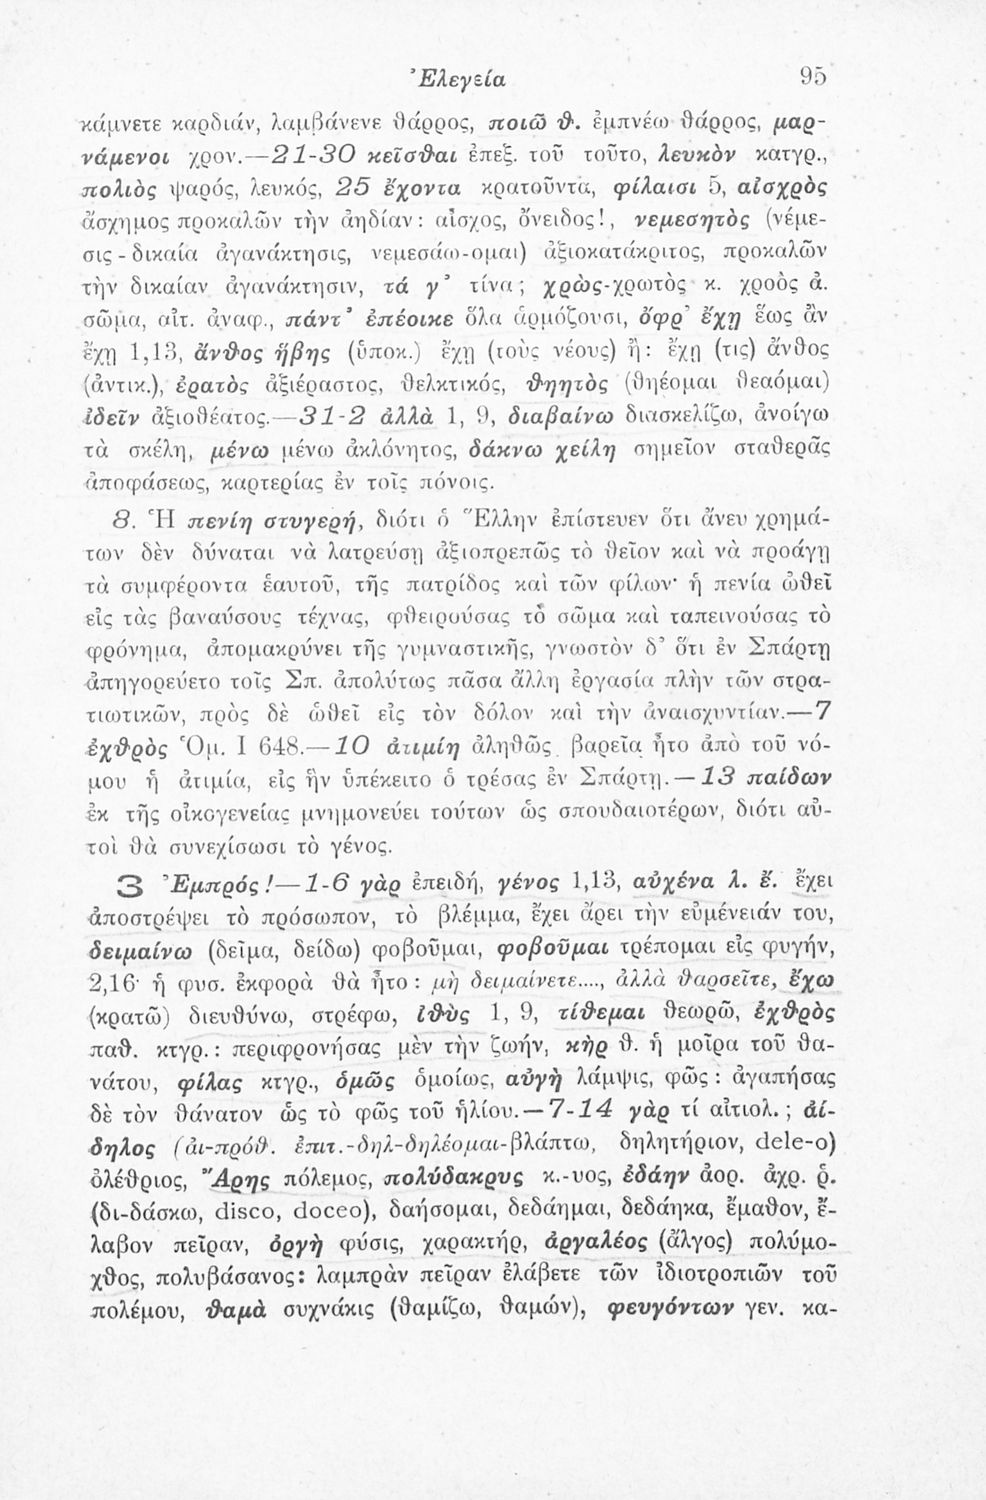 Ἐλεγεία 95
κάμνετε καρδιάν, λαμβάνενε θάρρος, ποιῶ θ. ἐμπνέω θάρρος, μαρ-
νάμενοι χρον.—21-30 κεῖσθαι ἐπεξ. τοῦ τοῦτο, λευκὸν κατγρ.,
πολιὸς ψαρός, λευκός, 25 ἔχοντα κρατοῦντα, φίλαισι 5, αἰσχρὸς
ἄσχημος προκαλῶν τὴν ἀηδίαν: αἶσχος, ὄνειδος!, νεμεσητὸς (νέμε-
σις - δικαία ἀγανάκτησις, νεμεσάω-ομαι) ἀξιοκατάκριτος, προκαλῶν
τὴν δικαίαν ἀγανάκτησιν, τά γ’ τίνα; χρὼς-χρωτὸς κ. χροὸς ἀ.
σῶμα, αἰτ. ἀναφ., πάντ’ ἐπέοικε ὅλα ἁρμόζουσι, ὄφρ’ ἔχῃ ἕως ἂν
ἔχῃ 1,13, ἄνθος ἥβης (ὑποκ.) ἔχῃ (τοὺς νέους) ἢ: ἔχῃ (τις) ἄνθος
(ἀντικ.), ἐρατὸς ἀξιέραστος, θελκτικός, θηητὸς (θηέομαι θεαόμαι)
ἰδεῖν ἀξιοθέατος.—31-2 ἀλλὰ 1, 9, διαβαίνω διασκελίζω, ἀνοίγω
τὰ σκέλη, μένω μένω ἀκλόνητος, δάκνω χείλη σημεῖον σταθερᾶς
ἀποφάσεως, καρτερίας ἐν τοῖς πόνοις.
8. Ἡ πενίη στυγερή, διότι ὁ Ἕλλην ἐπίστευεν ὅτι ἄνευ χρημά-
των δὲν δύναται νὰ λατρεύσῃ ἀξιοπρεπῶς τὸ θεῖον καὶ νὰ προάγῃ
τὰ συμφέροντα ἑαυτοῦ, τῆς πατρίδος καὶ τῶν φίλων· ἡ πενία ὠθεῖ
εἰς τὰς βαναύσους τέχνας, φθειρούσας τὸ σῶμα καὶ ταπεινούσας τὸ
φρόνημα, ἀπομακρύνει τῆς γυμναστικῆς, γνωστὸν δ’ ὅτι ἐν Σπάρτῃ
ἀπηγορεύετο τοῖς Σπ. ἀπολύτως πᾶσα ἄλλη ἐργασία πλὴν τῶν στρα-
τιωτικῶν, πρὸς δὲ ὠθεῖ εἰς τὸν δόλον καὶ τὴν ἀναισχυντίαν.—7
ἐχθρὸς Ὁμ. Ι 648.—10 ἀτιμίη ἀληθῶς βαρεῖα ἦτο ἀπὸ τοῦ νό-
μου ἡ ἀτιμία, εἰς ἣν ὑπέκειτο ὁ τρέσας ἐν Σπάρτῃ.—13 παίδων
ἐκ τῆς οἰκογενείας μνημονεύει τούτων ὡς σπουδαιοτέρων, διότι αὐ-
τοὶ θὰ συνεχίσωσι τὸ γένος.
3 Ἐμπρός!—1-6 γὰρ ἐπειδή, γένος 1,13, αὐχένα λ. ἔ. ἔχει
ἀποστρέψει τὸ πρόσωπον, τὸ βλέμμα, ἔχει ἄρει τὴν εὐμένειάν του,
δειμαίνω (δεῖμα, δείδω) φοβοῦμαι, φοβοῦμαι τρέπομαι εἰς φυγήν,
2,16· ἡ φυσ. ἐκφορὰ θὰ ἦτο: μὴ δειμαίνετε...., ἀλλὰ θαρσεῖτε, ἔχω
(κρατῶ) διευθύνω, στρέφω, ἰθὺς 1, 9, τίθεμαι θεωρῶ, ἐχθρὸς
παθ. κτγρ.: περιφρονήσας μὲν τὴν ζωήν, κὴρ θ. ἡ μοῖρα τοῦ θα-
νάτου, φίλας κτγρ., ὁμῶς ὁμοίως, αὐγὴ λάμψις, φῶς: ἀγαπήσας
δὲ τὸν θάνατον ὡς τὸ φῶς τοῦ ἡλίου.—7-14 γὰρ τί αἰτιολ.; ἀί-
δηλος (ἀι-πρόθ. ἐπιτ.-δηλ-δηλέομαι-βλάπτω, δηλητήριον, dele-o)
ὀλέθριος, Ἄρης πόλεμος, πολύδακρυς κ.-υος, ἐδάην ἀορ. ἀχρ. ῥ.
(δι-δάσκω, disco, doceo), δαήσομαι, δεδάημαι, δεδάηκα, ἔμαθον, ἔ-
λαβον πεῖραν, ὀργὴ φύσις, χαρακτήρ, ἀργαλέος (ἄλγος) πολύμο-
χθος, πολυβάσανος: λαμπρὰν πεῖραν ἐλάβετε τῶν ἰδιοτροπιῶν τοῦ
πολέμου, θαμὰ συχνάκις (θαμίζω, θαμών), φευγόντων γεν. κα-